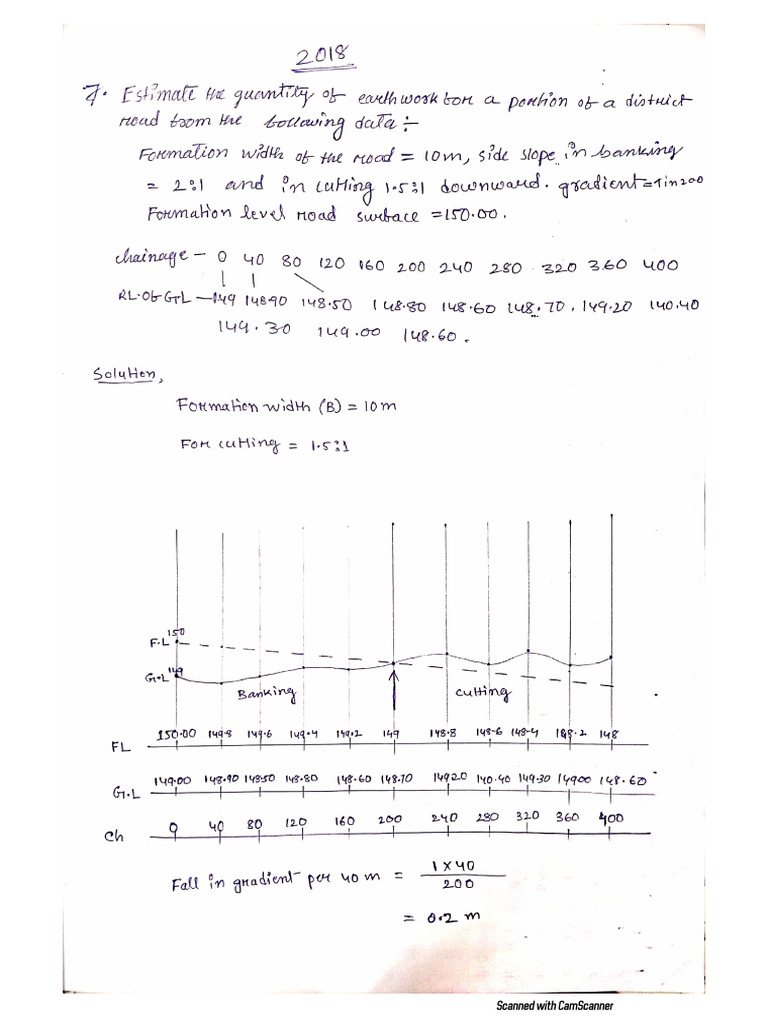 2018
7. Estimate the quantity of earthwork for a portion of a district
road from the following data :-
Formation width of the road = 10m, side slope in banking
= 2:1 and in cutting 1.5:1 downward. gradient = 1 in 200
Formation level road surface = 150.00.
Chainage - 0 40 80 120 160 200 240 280 320 360 400
RL. Of G.L - 149 148.90 148.50 148.80 148.60 148.70, 149.20 140.40
149.30 149.00 148.60.
Solution,
Formation width (B) = 10m
For cutting = 1.5:1
F.L 150
G.L 149
Banking cutting
FL 150.00 149.8 149.6 149.4 149.2 149 148.8 148.6 148.4 148.2 148
G.L 149.00 148.90 148.50 148.80 148.60 148.70 149.20 140.40 149.30 149.00 148.60
Ch 0 40 80 120 160 200 240 280 320 360 400
Fall in gradient per 40 m = 1 x 40
200
= 0.2 m
Scanned with CamScanner